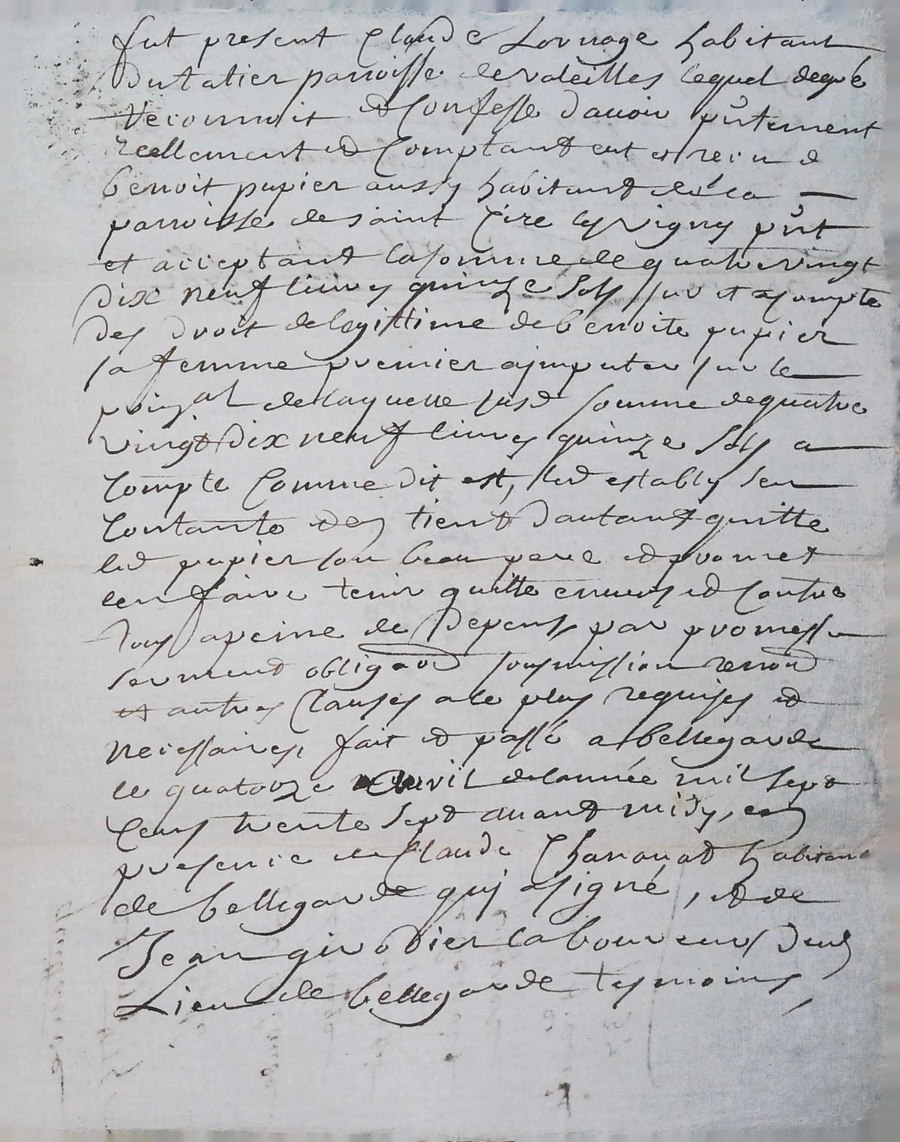 fut present Claude Lournage habitant
Dutatier parroisse de valeilles lequel de gré
Reconnoit et Confesse d'avoir pñtement
reellement et Comptant eut et receu de
benoit papier aussy habitant de la
parroisse de saint Cire les Vignes pñt
et acceptant la somme de quatre vingt
dix neuf livres quinze sols sur et a compte
des droit de legittime de benoite papier
sa femme premier a imputer sur le
prinãl de laquelle susd somme de quatre
vingt dix neuf livres quinze sols a
Compte Comme dit est, led estably sen
Contante et en tient d'autant quitte
led papier son beau pere et promet
len faire tenir quitte envers et Contre
tous a peine de Depens par promesse
serment obligaõn sousmission renonõn
et autres Clauses a le plus requises et
necessaires, fait et passé a bellegarde
le quatorze avril de l'année mil sept
Cens trente sept avant midy, en
presence de Claude Chanavat habitant
de bellegarde qui a signé, et de
Jean girodier laboureur dud
Lieu de bellegarde tesmoins,